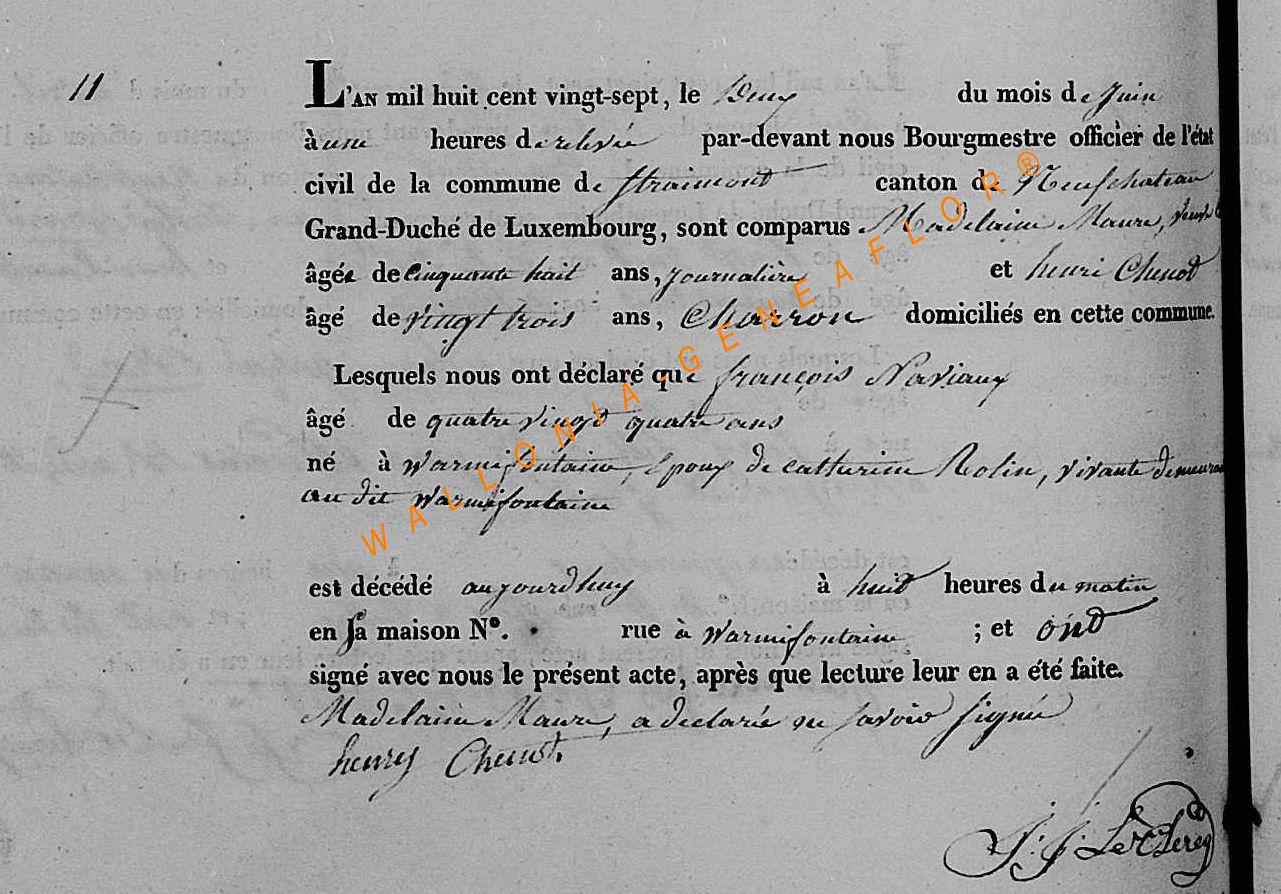 11
L'AN mil huit cent vingt-sept, le Deux du mois de Juin
à une heures de relevée par-devant nous Bourgmestre officier de l'état
civil de la commune de Straimont canton de Neufchateau
Grand-Duché de Luxembourg, sont comparus Madelaine Maure,
âgée de Cinquante huit ans, journalière et henri Chenot
âgé de vingt trois ans, Charron domiciliés en cette commune.
Lesquels nous ont déclaré que françois Naviaux
âgé de quatre vingt quatre ans
né à Warmifontaine, Epoux de catherine Rolin, vivante demeurant
au dit Warmifontaine
est décédé aujourdhuy à huit heures du matin
en sa maison N°. rue à Warmifontaine ; et ont
signé avec nous le présent acte, après que lecture leur en a été faite.
Madelaine Maure, a declarée ne savoir signée
henry Chenot
J. J. Leclereq
WALLONIA-GENEAFLOR®